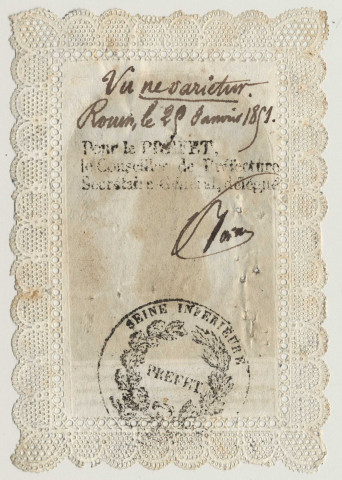 Vu ne varietur.
Rouen, le 29 Janvier 1851.
Pour le PREFET,
le Conseiller de Préfecture
Secrétaire Général, délégué
SEINE INFERIEURE
PREFET